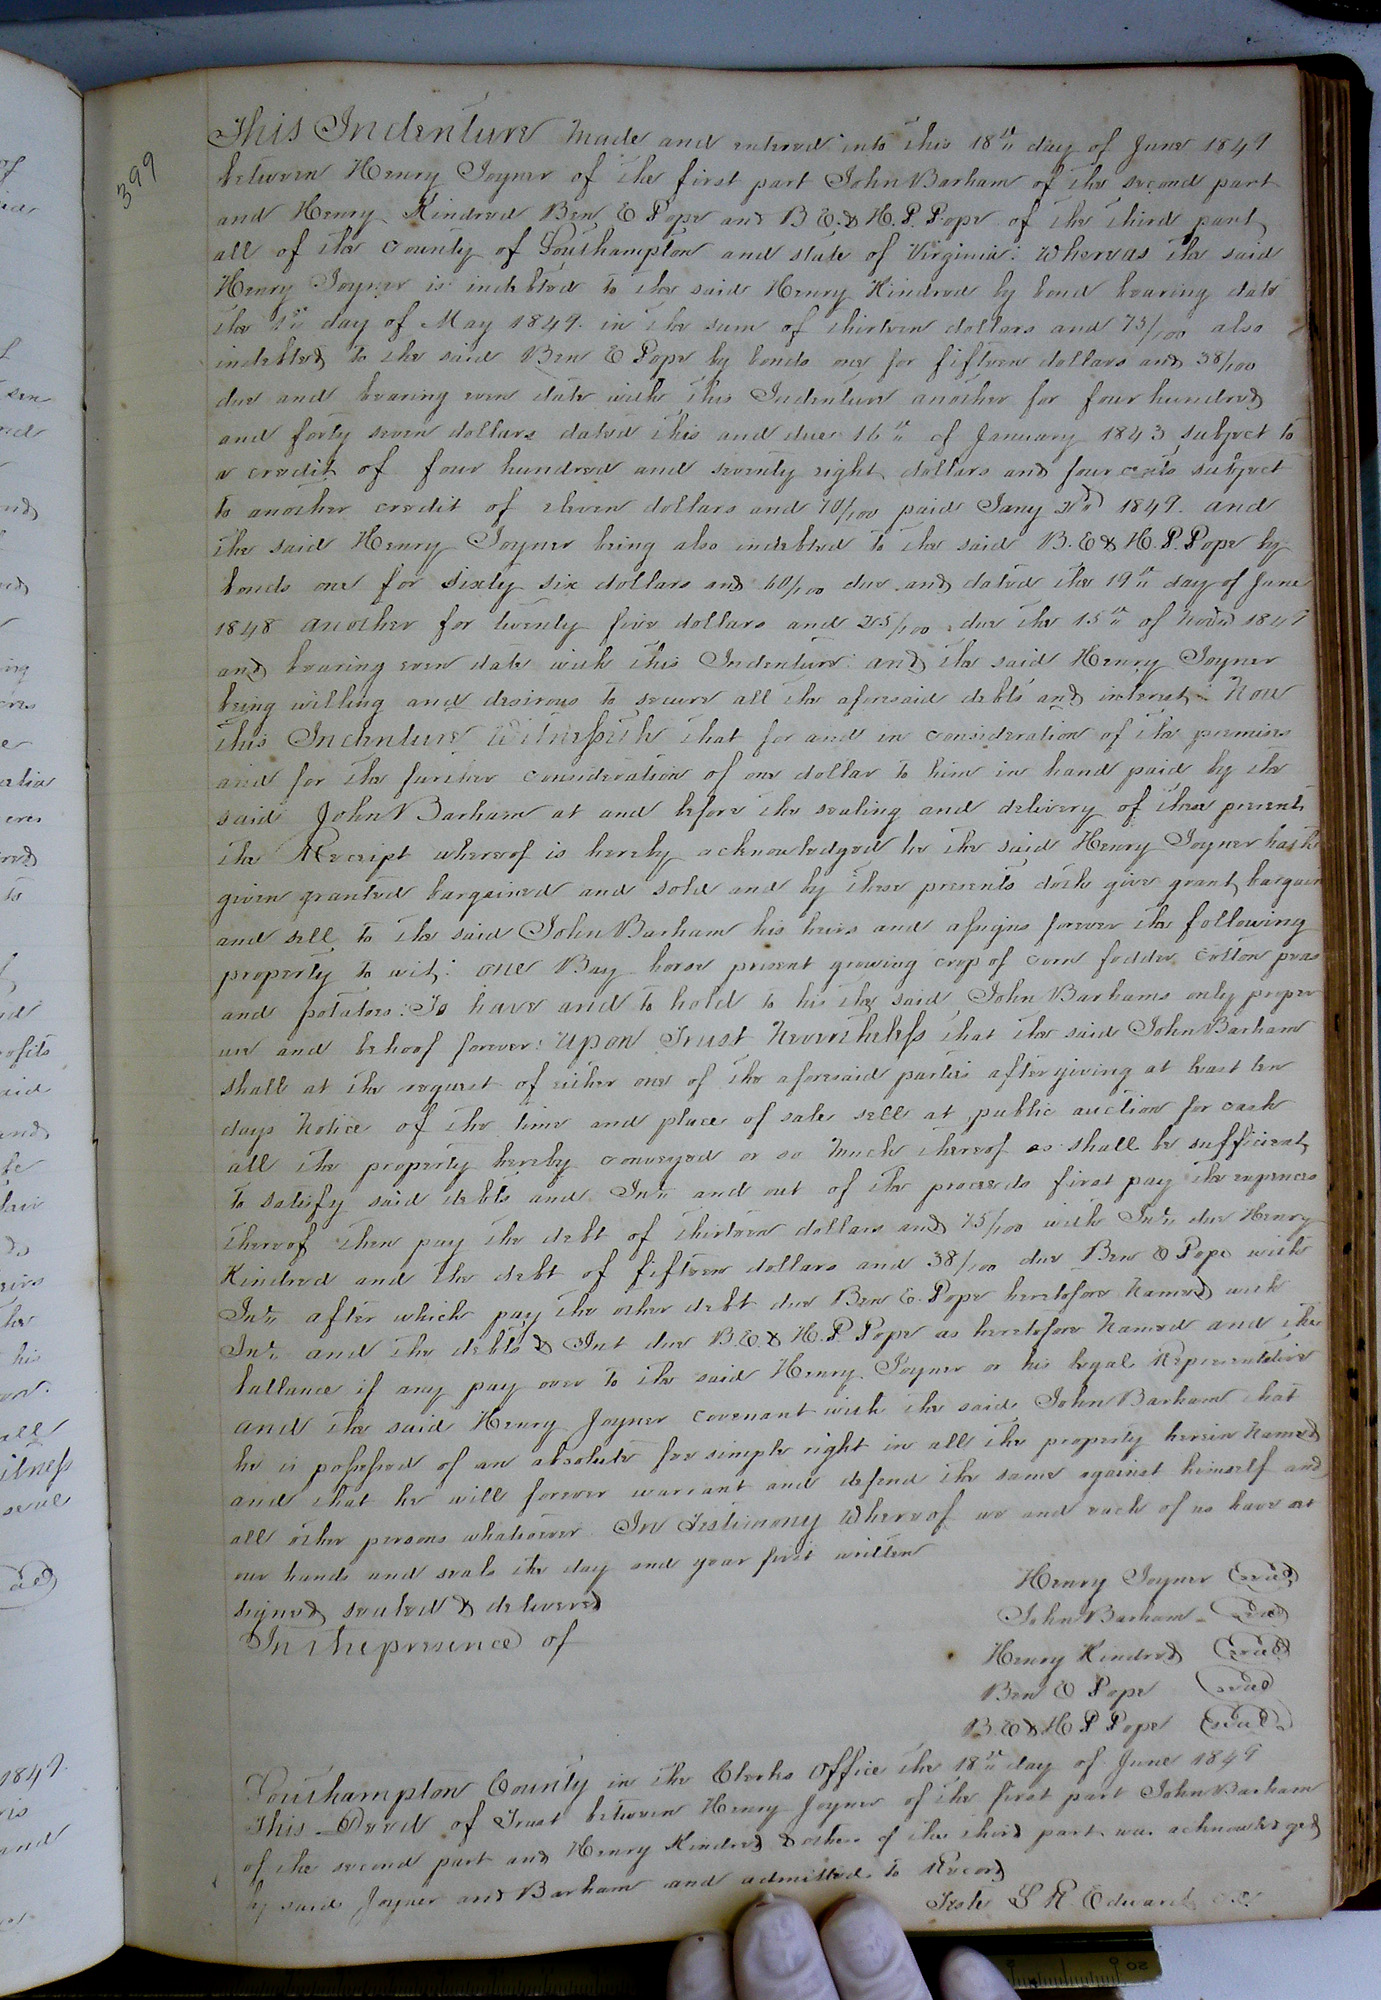 399
This Indenture Made and entered into this 18th day of June 1849
between Henry Joyner of the first part John Barham of the second part
and Henry Kindred Ben E Pope and B E. & H. P. Pope of the third part
all of the County of Southampton and state of Virginia: Whereas the said
Henry Joyner is indebted to the said Henry Kindred by bond bearing date
the 1st day of May 1849. in the sum of thirteen dollars and 75/100 also
indebted to the said Ben E Pope by bonds one for fifteen dollars and 38/100
due and bearing even date with this Indenture another for four hundred
and forty seven dollars dated this and due 16th of January 1843 subject to
a credit of four hundred and seventy eight dollars and four cents subject
to another credit of eleven dollars and 70/100 paid Jany 1849. and
the said Henry Joyner being also indebted to the said B. E & H. P. Pope by
bonds one for sixty six dollars and 60/100 due and dated the 19th day of June
1848 another for twenty five dollars and 25/100 due the 15th of 1849
and bearing even date with this Indenture: and the said Henry Joyner
being willing and desirous to secure all the aforesaid debts and interest: Now
This Indenture Witnesseth that for and in consideration of the premises
and for the further consideration of one dollar to him in hand paid by the
said John Barham at and before the sealing and delivery of these presents
the Receipt whereof is hereby acknowledged he the said Henry Joyner hath
given granted bargained and sold and by these presents doth give grant bargain
and sell to the said John Barham his heirs and assigns forever the following
property to wit: one Bay horse present growing crop of corn fodder cotton peas
and potatoes: To have and to hold to his the said John Barhams only proper
use and behoof forever: Upon Trust Nevertheless that the said John Barham
shall at the request of either one of the aforesaid parties after giving at least ten
days Notice of the time and place of sale sell at public auction for cash
all the property hereby conveyed or so Much thereof as shall be sufficient
to satisfy said debts and Int. and out of the proceeds first pay the expences
thereof then pay the debt of thirteen dollars and 75/100 with Int. due Henry
Kindred and the debt of fifteen dollars and 38/100 due Ben E Pope with
Int. after which pay the other debt due Ben E. Pope heretofore Named with
Int. and the debts & Int due B. E. & H. P. Pope as heretofore Named and the
ballance if any pay over to the said Henry Joyner or his legal Representative
and the said Henry Joyner covenant with the said John Barham that
he is possessed of an absolute fee simple right in all the property herein Named
and that he will forever warrant and defend the same against himself and
all other persons whatsoever In Testimony Whereof we and each of us have set
our hands and seals the day and year first written
signed sealed & delivered
In the presence of
Henry Joyner seal
John Barham - seal
Henry Kindred seal
Ben E Pope seal
B. E & H P Pope seal
Southampton County in the Clerks Office the 18th day of June 1849
This Deed of Trust between Henry Joyner of the first part John Barham
of the second part and Henry Kindred & others of the third part was acknowledged
by said Joyner and Barham and admitted to Record
Teste L R. Edwards